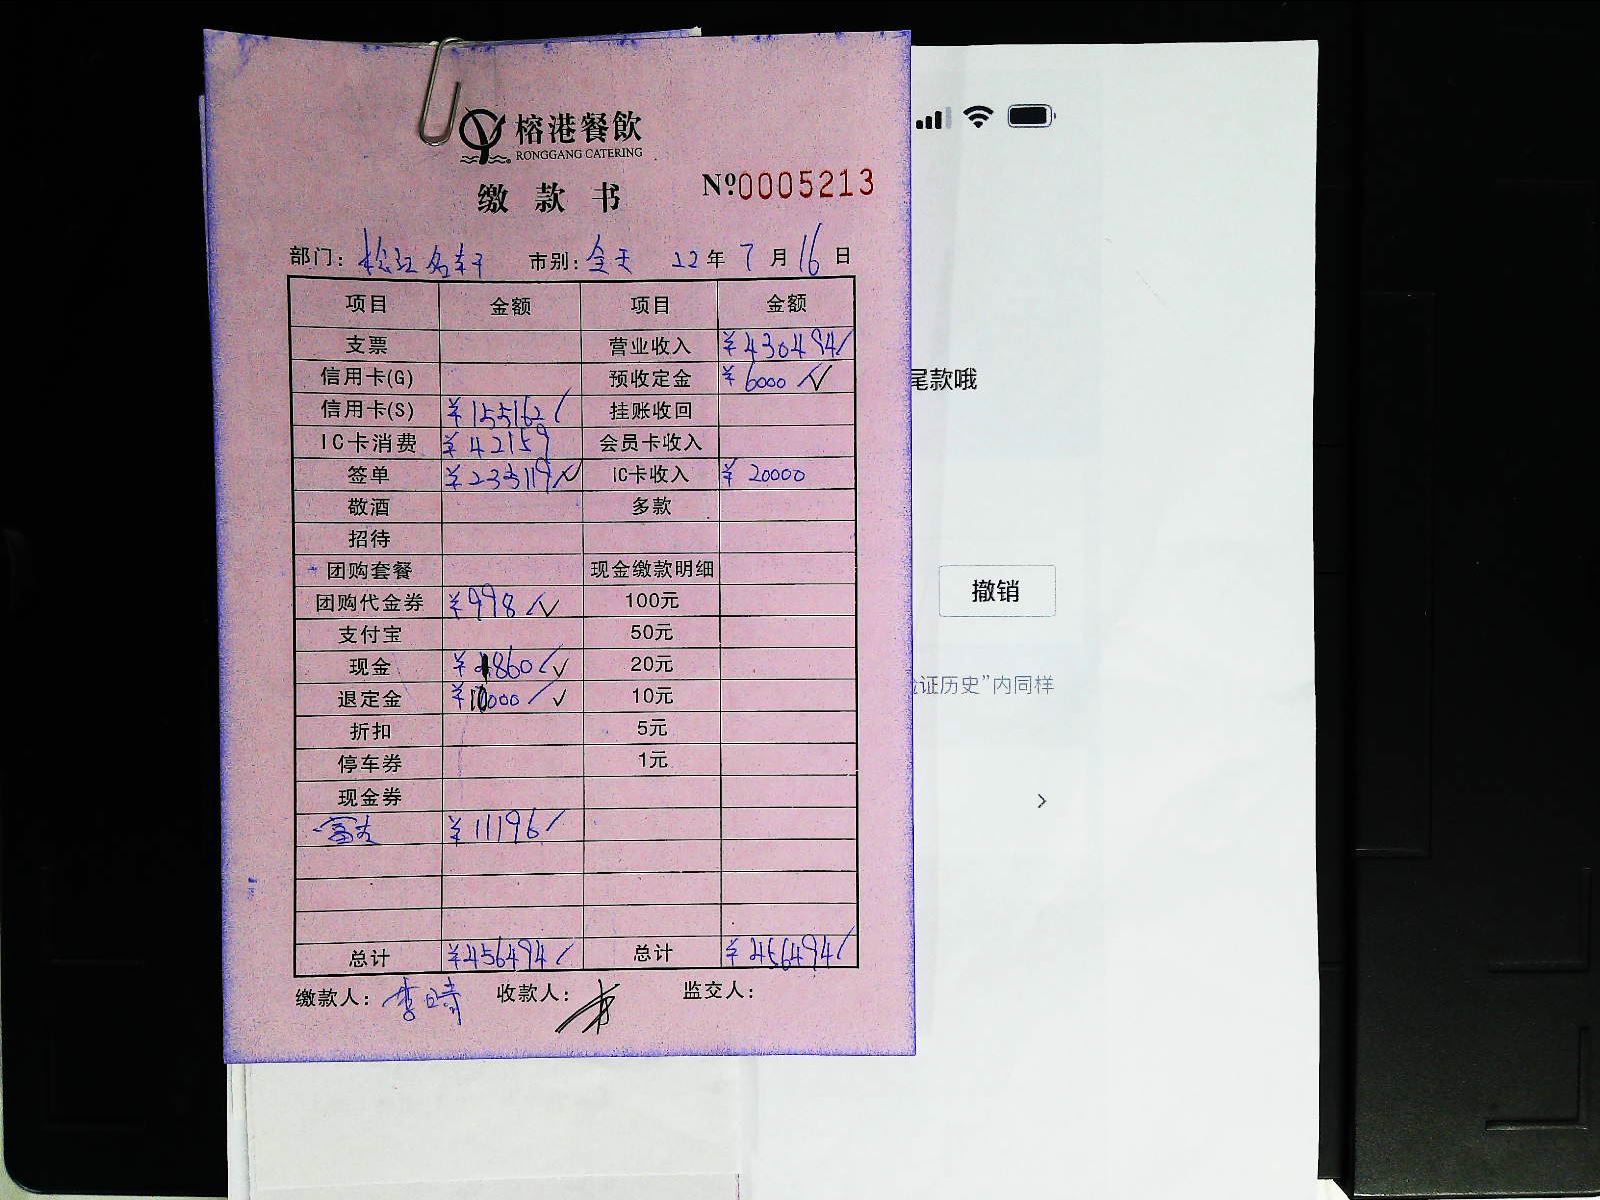 榕港餐飲
RONGGANG CATERING
缴款书 №0005213
部门：松江名轩 市别：全天 22年7月16日
项目 金额 项目 金额
支票 营业收入 ¥430494
信用卡(G) 预收定金 ¥6000
信用卡(S) ¥155162 挂账收回
IC卡消费 ¥42159 会员卡收入
签单 ¥233119 IC卡收入 ¥20000
敬酒 多款
招待
团购套餐 现金缴款明细
团购代金券 ¥998 100元
支付宝 50元
现金 ¥1860 20元
退定金 ¥10000 10元
折扣 5元
停车券 1元
现金券
富友 ¥11196
总计 ¥456494 总计 ¥456494
缴款人：李晴 收款人： 监交人：
尾款哦
撤销
证历史”内同样